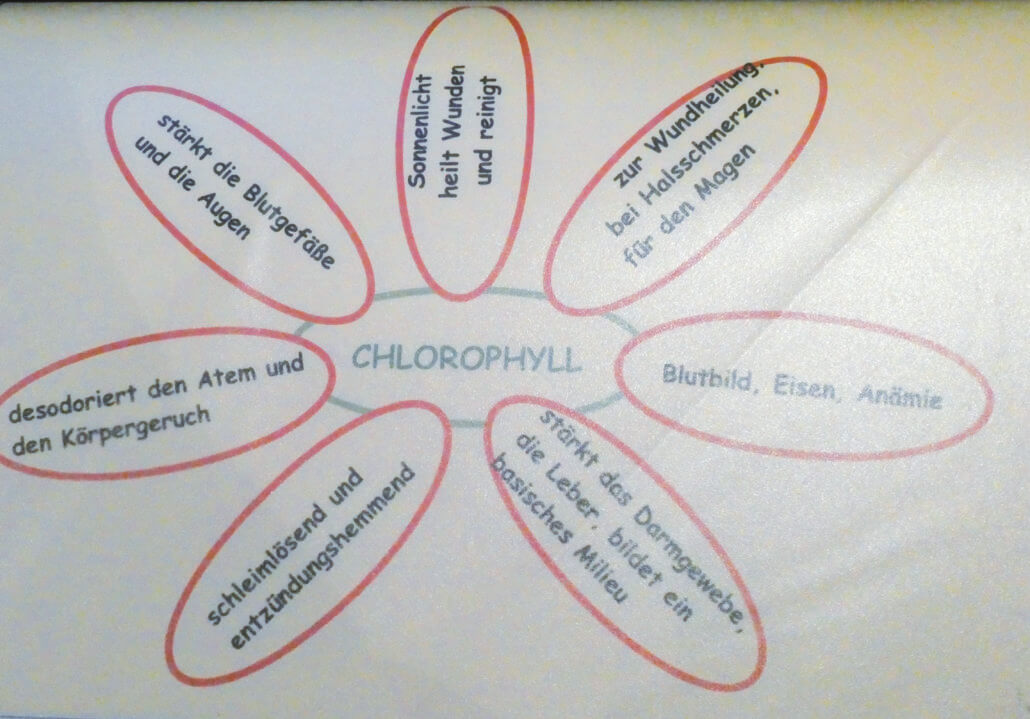 CHLOROPHYLL
Sonnenlicht
heilt Wunden
und reinigt
zur Wundheilung,
bei Halsschmerzen,
für den Magen
Blutbild, Eisen, Anämie
stärkt das Darmgewebe,
die Leber, bildet ein
basisches Milieu
schleimlösend und
entzündungshemmend
desodoriert den Atem und
den Körpergeruch
stärkt die Blutgefäße
und die Augen